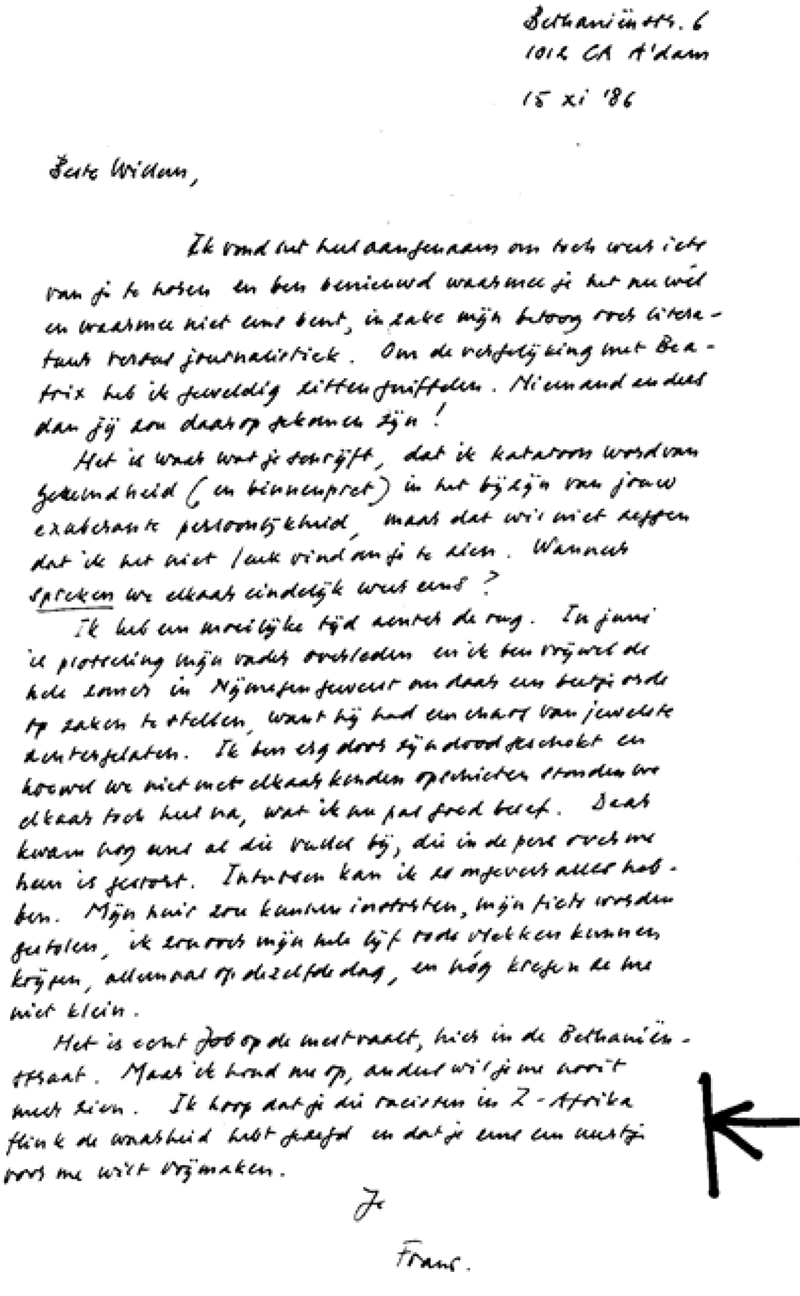 Bethaniënstr. 6
1012 CA A'dam
15 xi '86
Beste Willem,
Ik vond het heel aangenaam om toch weer iets
van je te horen en ben benieuwd waarmee je het nu wél
en waarmee niet eens bent, inzake mijn betoog over litera-
tuur versus journalistiek. Om de vergelijking met Bea-
trix heb ik geweldig zitten gniffelen. Niemand anders
dan jij zou daarop gekomen zijn!
Het is waar wat je schrijft, dat ik katatoon word van
geremdheid (en binnenpret) in het bijzijn van jouw
exuberante persoonlijkheid, maar dat wil niet zeggen
dat ik het niet leuk vind om je te zien. Wanneer
spreken we elkaar eindelijk weer eens?
Ik heb een moeilijke tijd achter de rug. In juni
is plotseling mijn vader overleden en ik ben vrijwel de
hele zomer in Nijmegen geweest om daar een beetje orde
op zaken te stellen, want hij had een chaos van jewelste
achtergelaten. Ik ben erg door zijn dood geschokt en
hoewel we niet met elkaar konden opschieten stonden we
elkaar toch heel na, wat ik nu pas goed besef. Daar
kwam nog eens al die vuiligheid bij, die in de pers over me
heen is gestort. Intussen kan ik zo ongeveer alles heb-
ben. Mijn huis zou kunnen instorten, mijn fiets worden
gestolen, ik zou over mijn hele lijf rode vlekken kunnen
krijgen, allemaal op dezelfde dag, en nóg kregen ze me
niet klein.
Het is echt Job op de mestvaalt, hier in de Bethaniën-
straat. Maar ik houd me op, anders wil je me nooit
meer zien. Ik hoop dat je die racisten in Z-Afrika
flink de waarheid hebt gezegd en dat je eens een uurtje
voor me wilt vrijmaken.
Je
Frans.